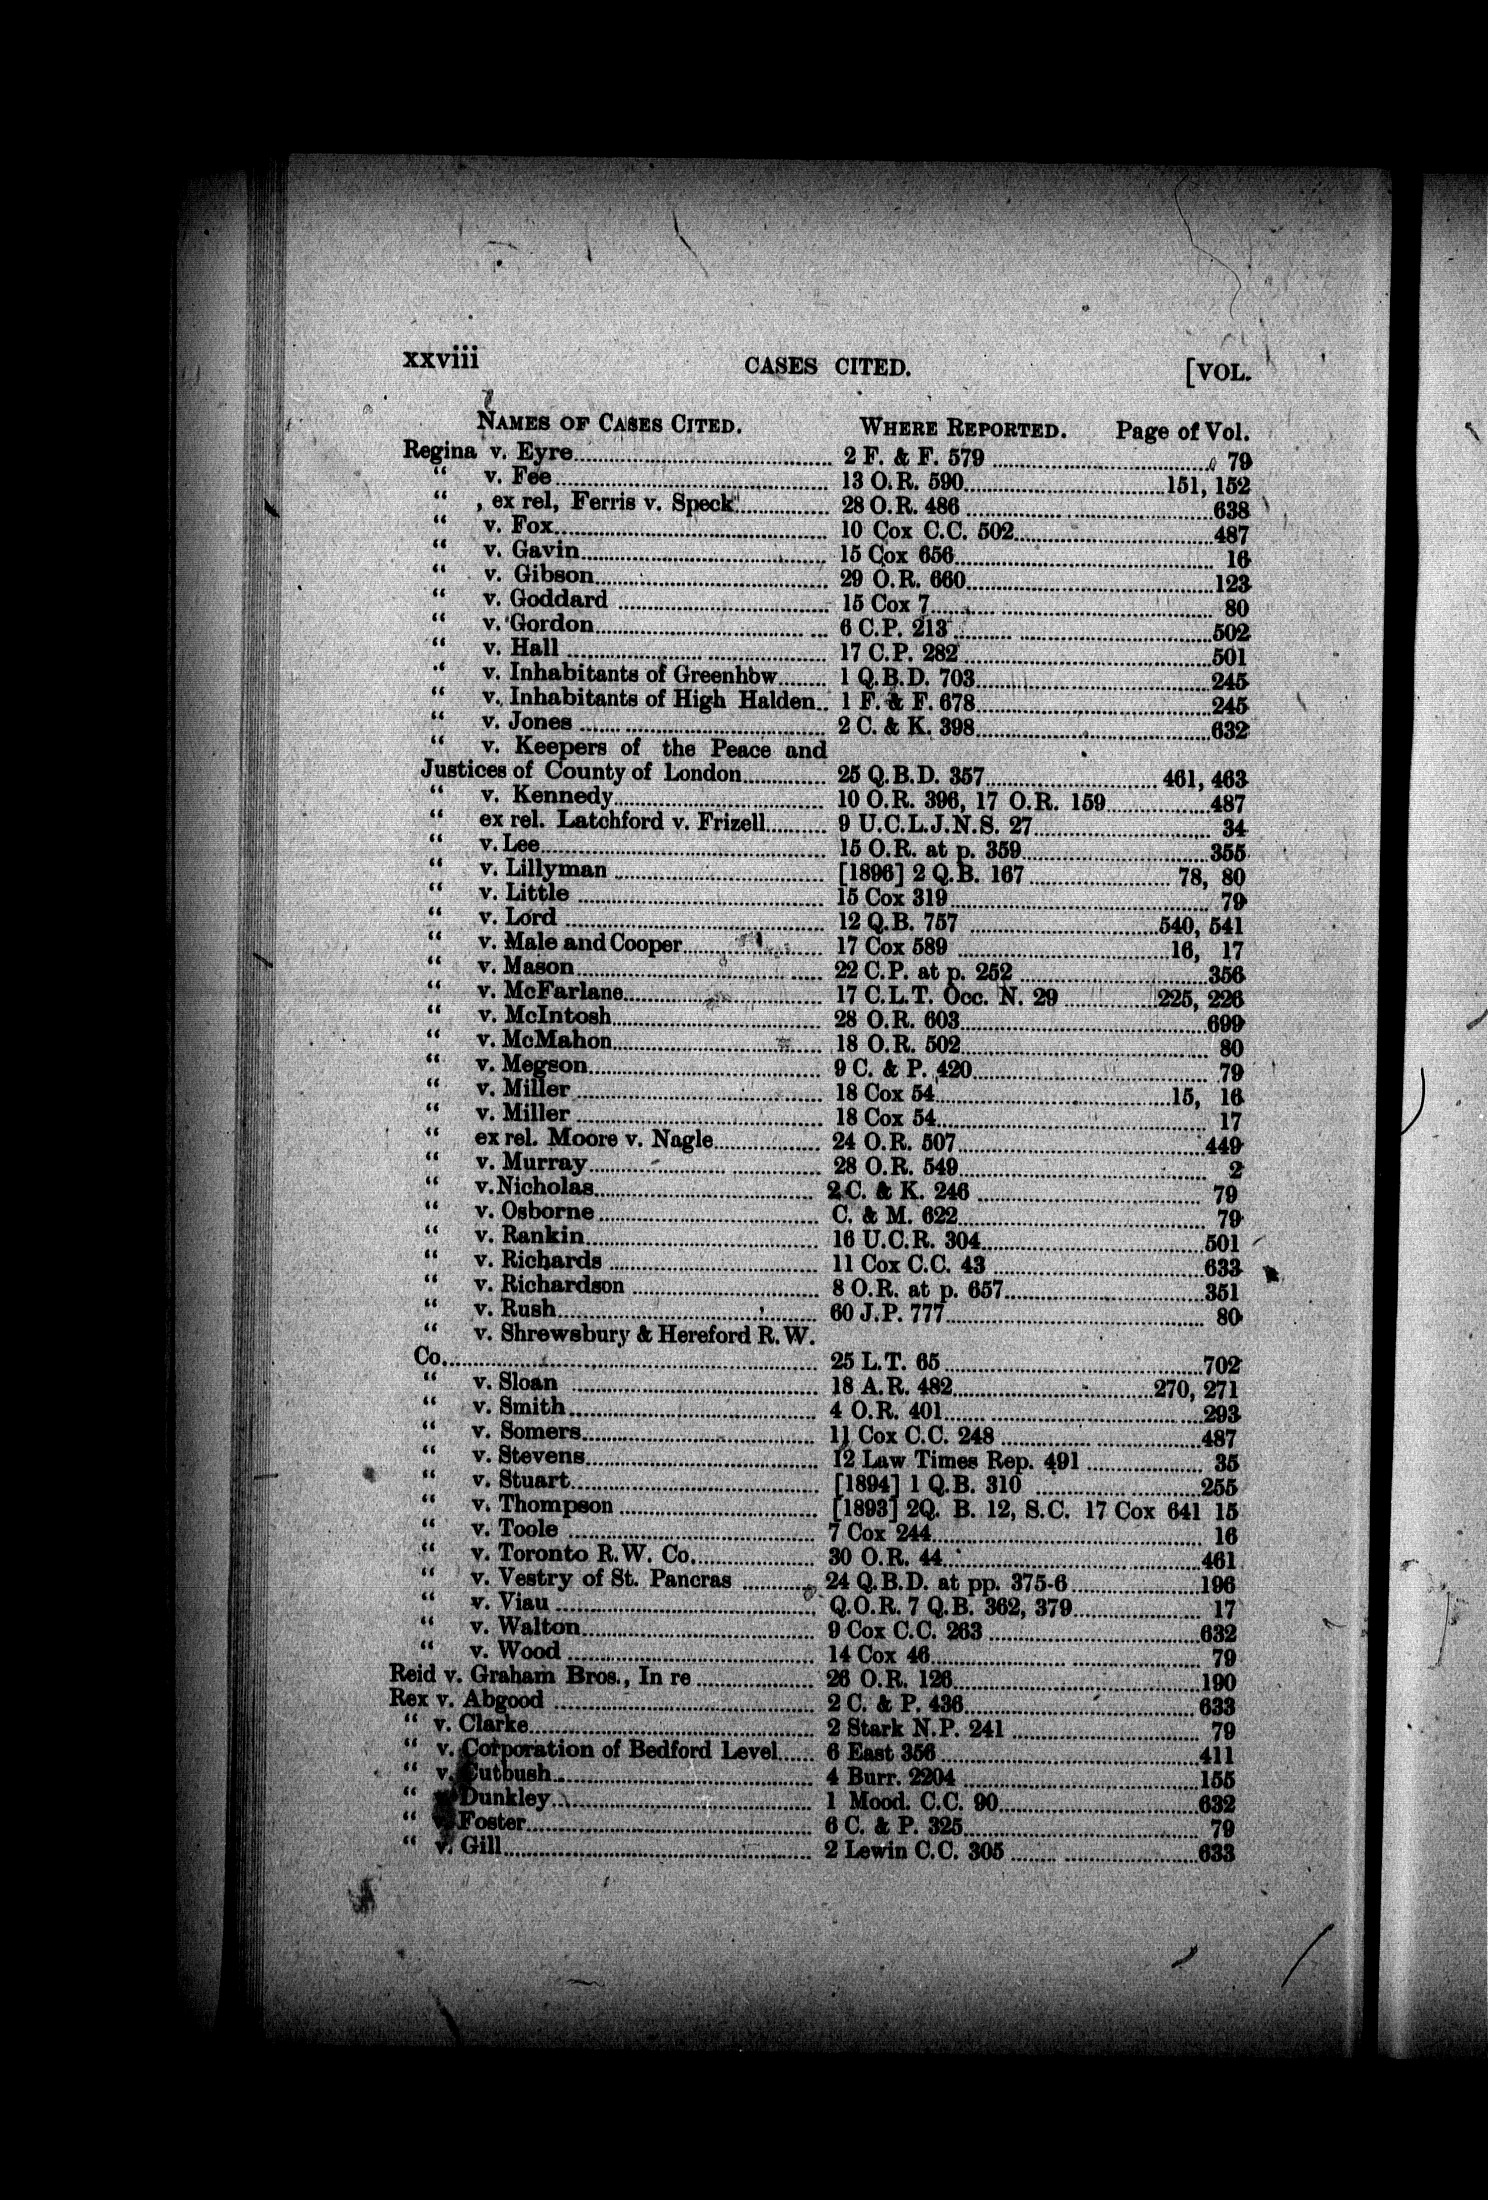 xxviii CASES CITED. [VOL.
NAMES OF CASES CITED. WHERE REPORTED. Page of Vol.
Regina v. Eyre........ 2 F. & F. 579 ........ 79
“ v. Fee........ 13 O.R. 590........151, 152
“ , ex rel, Ferris v. Speck........ 28 O.R. 486 ........638
“ v. Fox........ 10 Cox C.C. 502........487
“ v. Gavin........ 15 Cox 656........ 16
“ v. Gibson........ 29 O.R. 660........123
“ v. Goddard ........ 15 Cox 7........ 80
“ v. Gordon........ 6 C.P. 213........502
“ v. Hall ........ 17 C.P. 282 ........501
“ v. Inhabitants of Greenhow........ 1 Q.B.D. 703........245
“ v. Inhabitants of High Halden.. 1 F. & F. 678........245
“ v. Jones ........ 2 C. & K. 398........632
“ v. Keepers of the Peace and
Justices of County of London........ 25 Q.B.D. 357........ 461, 463
“ v. Kennedy........ 10 O.R. 396, 17 O.R. 159........487
“ ex rel. Latchford v. Frizell........ 9 U.C.L.J.N.S. 27........ 34
“ v. Lee........ 15 O.R. at p. 359........355
“ v. Lillyman ........ [1896] 2 Q.B. 167 ........ 78, 80
“ v. Little ........ 15 Cox 319........ 79
“ v. Lord ........ 12 Q.B. 757 ........540, 541
“ v. Male and Cooper........ 17 Cox 589 ........16, 17
“ v. Mason........ 22 C.P. at p. 252 ........356
“ v. McFarlane........ 17 C.L.T. Occ. N. 29 ........225, 226
“ v. McIntosh........ 28 O.R. 603........699
“ v. McMahon........ 18 O.R. 502........ 80
“ v. Megson........ 9 C. & P. 420........ 79
“ v. Miller ........ 18 Cox 54........15, 16
“ v. Miller ........ 18 Cox 54........ 17
“ ex rel. Moore v. Nagle........ 24 O.R. 507........449
“ v. Murray........ 28 O.R. 549........ 2
“ v.Nicholas........ 2 C. & K. 246 ........ 79
“ v. Osborne ........ C. & M. 622........ 79
“ v. Rankin........ 16 U.C.R. 304........501
“ v. Richards ........ 11 Cox C.C. 43 ........633
“ v. Richardson ........ 8 O.R. at p. 657........351
“ v. Rush........ 60 J.P. 777........ 80
“ v. Shrewsbury & Hereford R.W.
Co........ 25 L.T. 65 ........702
“ v. Sloan ........ 18 A.R. 482........270, 271
“ v. Smith........ 4 O.R. 401........293
“ v. Somers........ 11 Cox C.C. 248 ........487
“ v. Stevens........ 12 Law Times Rep. 491 ........ 35
“ v. Stuart........ [1894] 1 Q.B. 310 ........255
“ v. Thompson ........ [1893] 2Q. B. 12, S.C. 17 Cox 641 15
“ v. Toole ........ 7 Cox 244........ 16
“ v. Toronto R.W. Co........ 30 O.R. 44........461
“ v. Vestry of St. Pancras ........ 24 Q.B.D. at pp. 375-6........196
“ v. Viau ........ Q.O.R. 7 Q.B. 362, 379........ 17
“ v. Walton........ 9 Cox C.C. 263 ........632
“ v. Wood ........ 14 Cox 46........ 79
Reid v. Graham Bros., In re ........ 26 O.R. 126........190
Rex v. Abgood ........ 2 C. & P. 436........633
“ v. Clarke........ 2 Stark N.P. 241 ........ 79
“ v. Corporation of Bedford Level...... 6 East 356 ........411
“ v. Cutbush........ 4 Burr. 2204 ........155
“ Dunkley........ 1 Mood. C.C. 90........632
“ v. Foster........ 6 C. & P. 325........ 79
“ v. Gill........ 2 Lewin C.C. 305 ........633